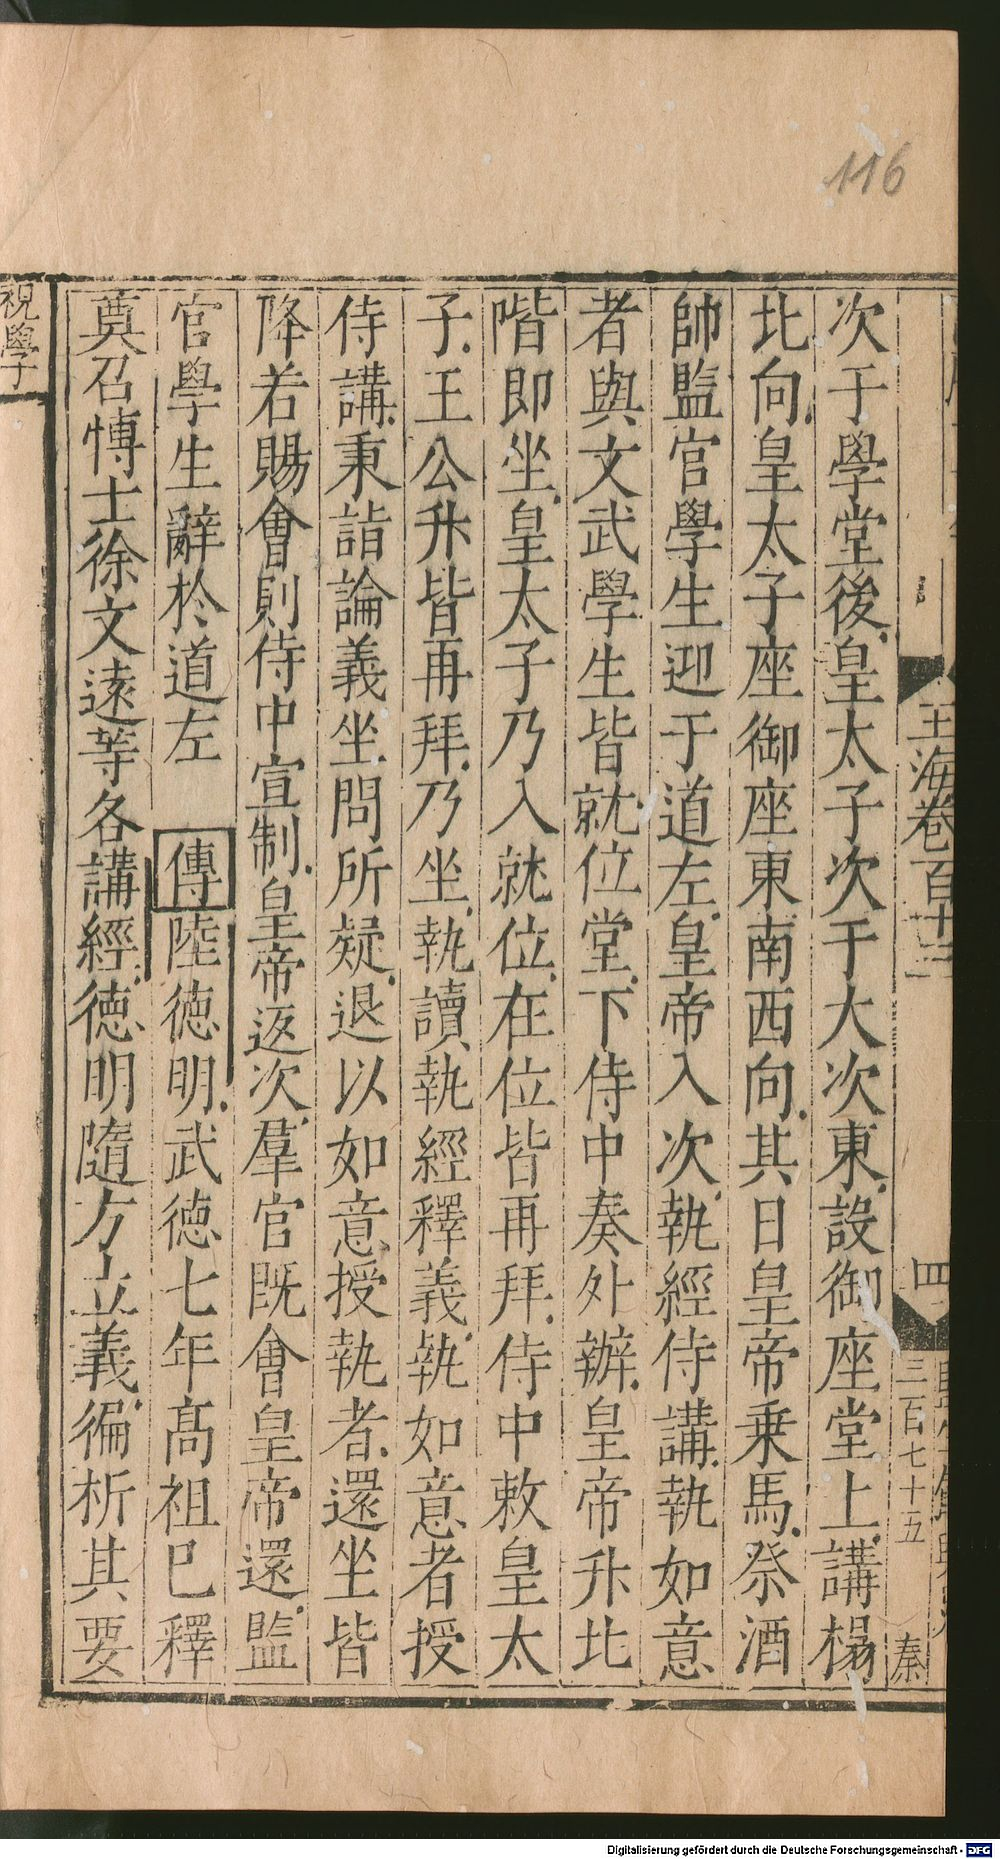 116
玉海卷百十三
四
三百七十五
秦
次于學堂後皇太子次于大次東設御座堂上講榻
北向皇太子座御座東南西向其日皇帝乗馬祭酒
帥監官學生迎于道左皇帝入次執經侍講執如意
者與文武學生皆就位堂下侍中奏外辦皇帝升北
階即坐皇太子乃入就位在位皆再拜侍中敕皇太
子王公升皆再拜乃坐執讀執經釋義執如意者授
侍講秉詣論義坐問所疑退以如意授執者還坐皆
降若賜會則侍中宣制皇帝返次羣官既會皇帝還監
官學生辭於道左 傳陸德明武德七年髙祖巳釋
奠召愽士徐文遠等各講經德明隨方立義徧析其要
視學
Digitalisierung gefördert durch die Deutsche Forschungsgemeinschaft - DFG